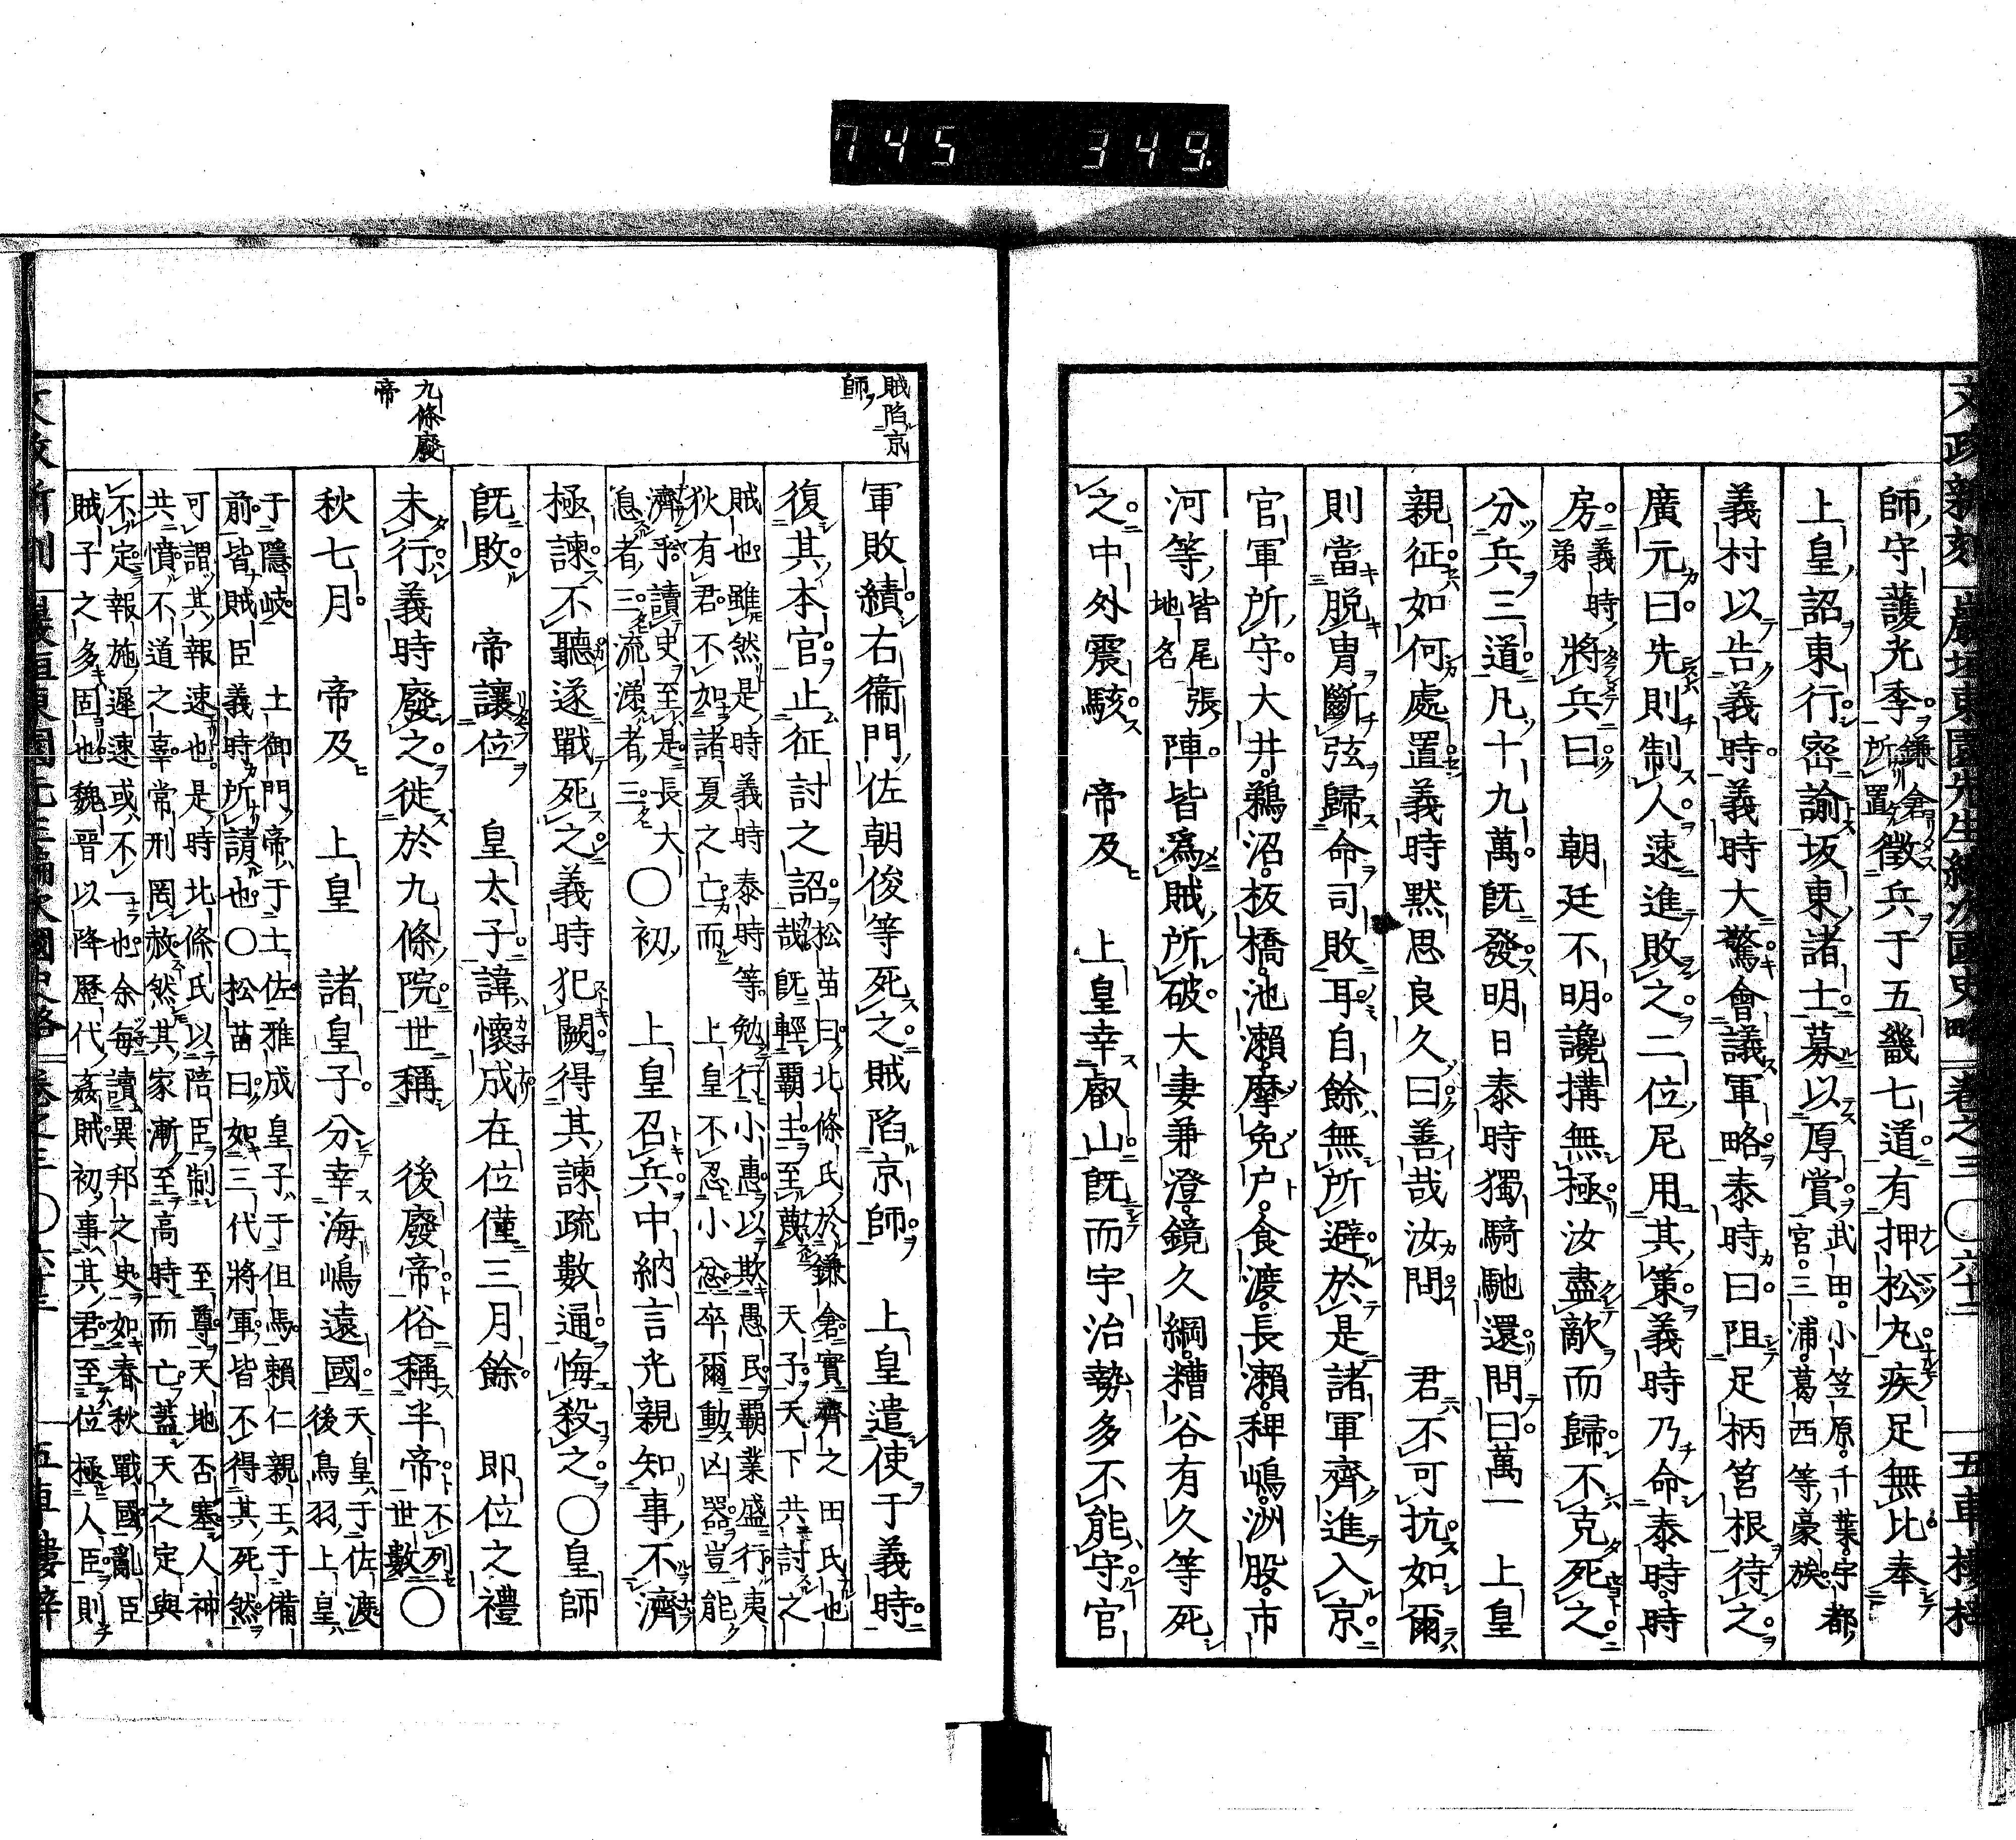 745 349.
師守護光季鎌倉所置徵兵于五畿七道有押松丸疾足無比奉
上皇詔東行密諭坂東諸士募以厚賞武田。小笠原。千葉。宇都宮。三浦。葛西等豪族
義村以告義時。義時大驚會議軍略泰時曰阻足柄筥根待之
廣元曰先則制人速進敗之二位尼用其策義時乃命泰時。時
房義時弟將兵曰 朝廷不明讒搆無極汝盡敵而歸不克死之
分兵三道凡十九萬既發明日泰時獨騎馳還問曰萬一 上皇
親征如何處置義時默思良久曰善哉汝問 君不可抗如爾
則當脱冑斷弦歸命司敗耳自餘無所避於是諸軍齊進入京
官軍所守大井。鵜沼。板橋。池瀨。摩免戸。食渡。長瀨。稗嶋。洲股。市
河等皆尾張地名陣皆爲賊所破大妻兼澄。鏡久綱。糟谷有久等死
之中外震駭 帝及 上皇幸叡山既而宇治勢多不能守官
賊陷京師
九條廢帝
軍敗績右衞門佐朝俊等死之賊陷京師 上皇遣使于義時
復其本官止征討之詔松苗曰北條氏於鎌倉實齊之田氏也哉既輕覇主至蔑 天子天下共討之
賊也雖然是時義時泰時等勉行小惠以欺愚民覇業盛行夷狄有君不如諸夏之亡而 上皇不忍小忿卒爾動凶器豈能
濟乎讀史至是長大息者三流涕者三〇初 上皇召兵中納言光親知事不濟
極諫不聽遂戰死之義時犯闕得其諫疏數通悔殺之〇皇師
既敗 帝讓位 皇太子諱懷成在位僅三月餘 即位之禮
未行義時廢之徙於九條院世稱 後廢帝俗稱半帝不列世數〇
秋七月 帝及 上皇 諸皇子分幸海嶋遠國天皇于佐渡後鳥羽上皇
于隱岐 土御門帝于土佐雅成皇子于但馬賴仁親王于備前皆賊臣義時所請也〇松苗曰如三代將軍皆不得其死然
可謂其報速也是時北條氏以陪臣制 至尊天地否塞人神共憤不道之辜常刑罔赦然其家漸至高時而亡蓋天之定與
不定報施遲速或不一也余每讀異邦之史如春秋戰國亂臣賊子之多固也魏晉以降歷代姦賊初事其君至位極人臣則